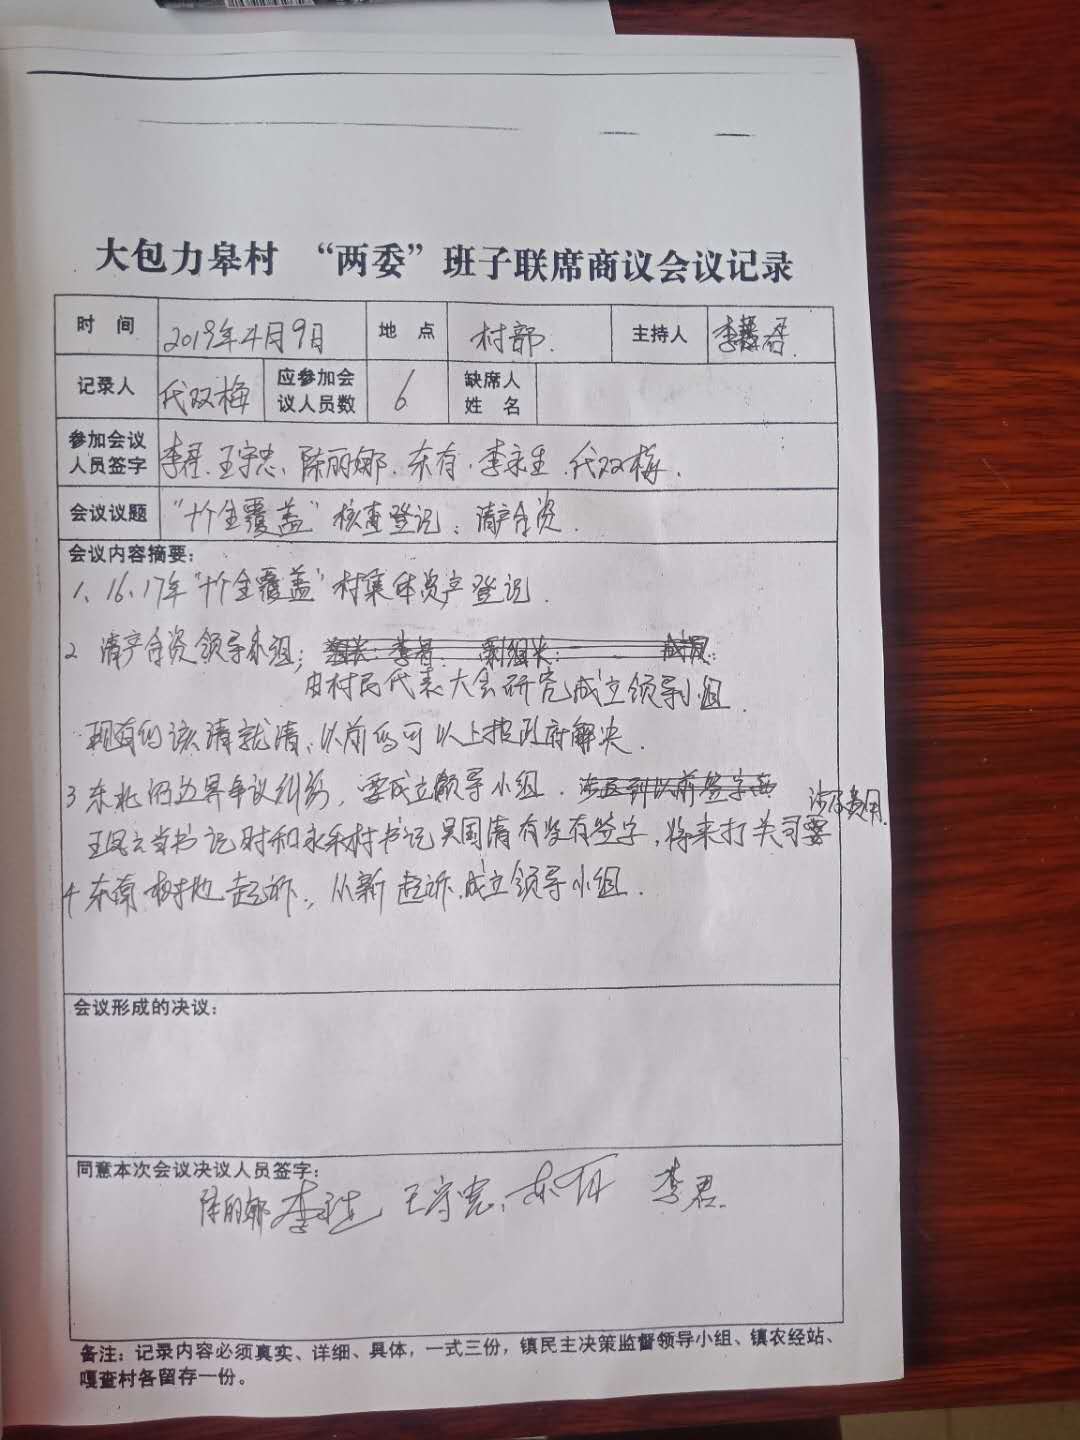 大包力皋村 “两委”班子联席商议会议记录
时 间 2019年4月9日 地 点 村部. 主持人 李君.
记录人 代双梅 应参加会议人员数 6 缺席人姓名
参加会议人员签字 李君、王守忠、陈丽娜、东有、李永生、代双梅.
会议议题 “十个全覆盖”核查登记、清产合资.
会议内容摘要:
1、16、17年“十个全覆盖”村集体资产登记.
2 清产合资领导小组; 组长:李君. 副组长: 成员:
由村民代表大会研究成立领导小组.
现有的该清就清、以前的可以上报政府解决.
3 东北 边界争议纠纷, 要成立领导小组. 涉及到以前签字 涉及费用.
当书记时和永和村书记吴国清有没有签字,将来打关司要
4 东南 树地起诉, 从新起诉.成立领导小组.
会议形成的决议:
同意本次会议决议人员签字:
陈丽娜 李永生 王守忠、东有 李君.
备注:记录内容必须真实、详细、具体,一式三份,镇民主决策监督领导小组、镇农经站、
嘎查村各留存一份。